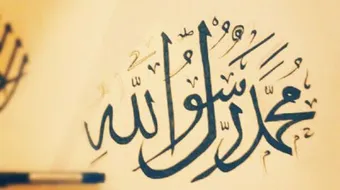 مُحَمَّدٌ رَسُولُ اللَّهِ